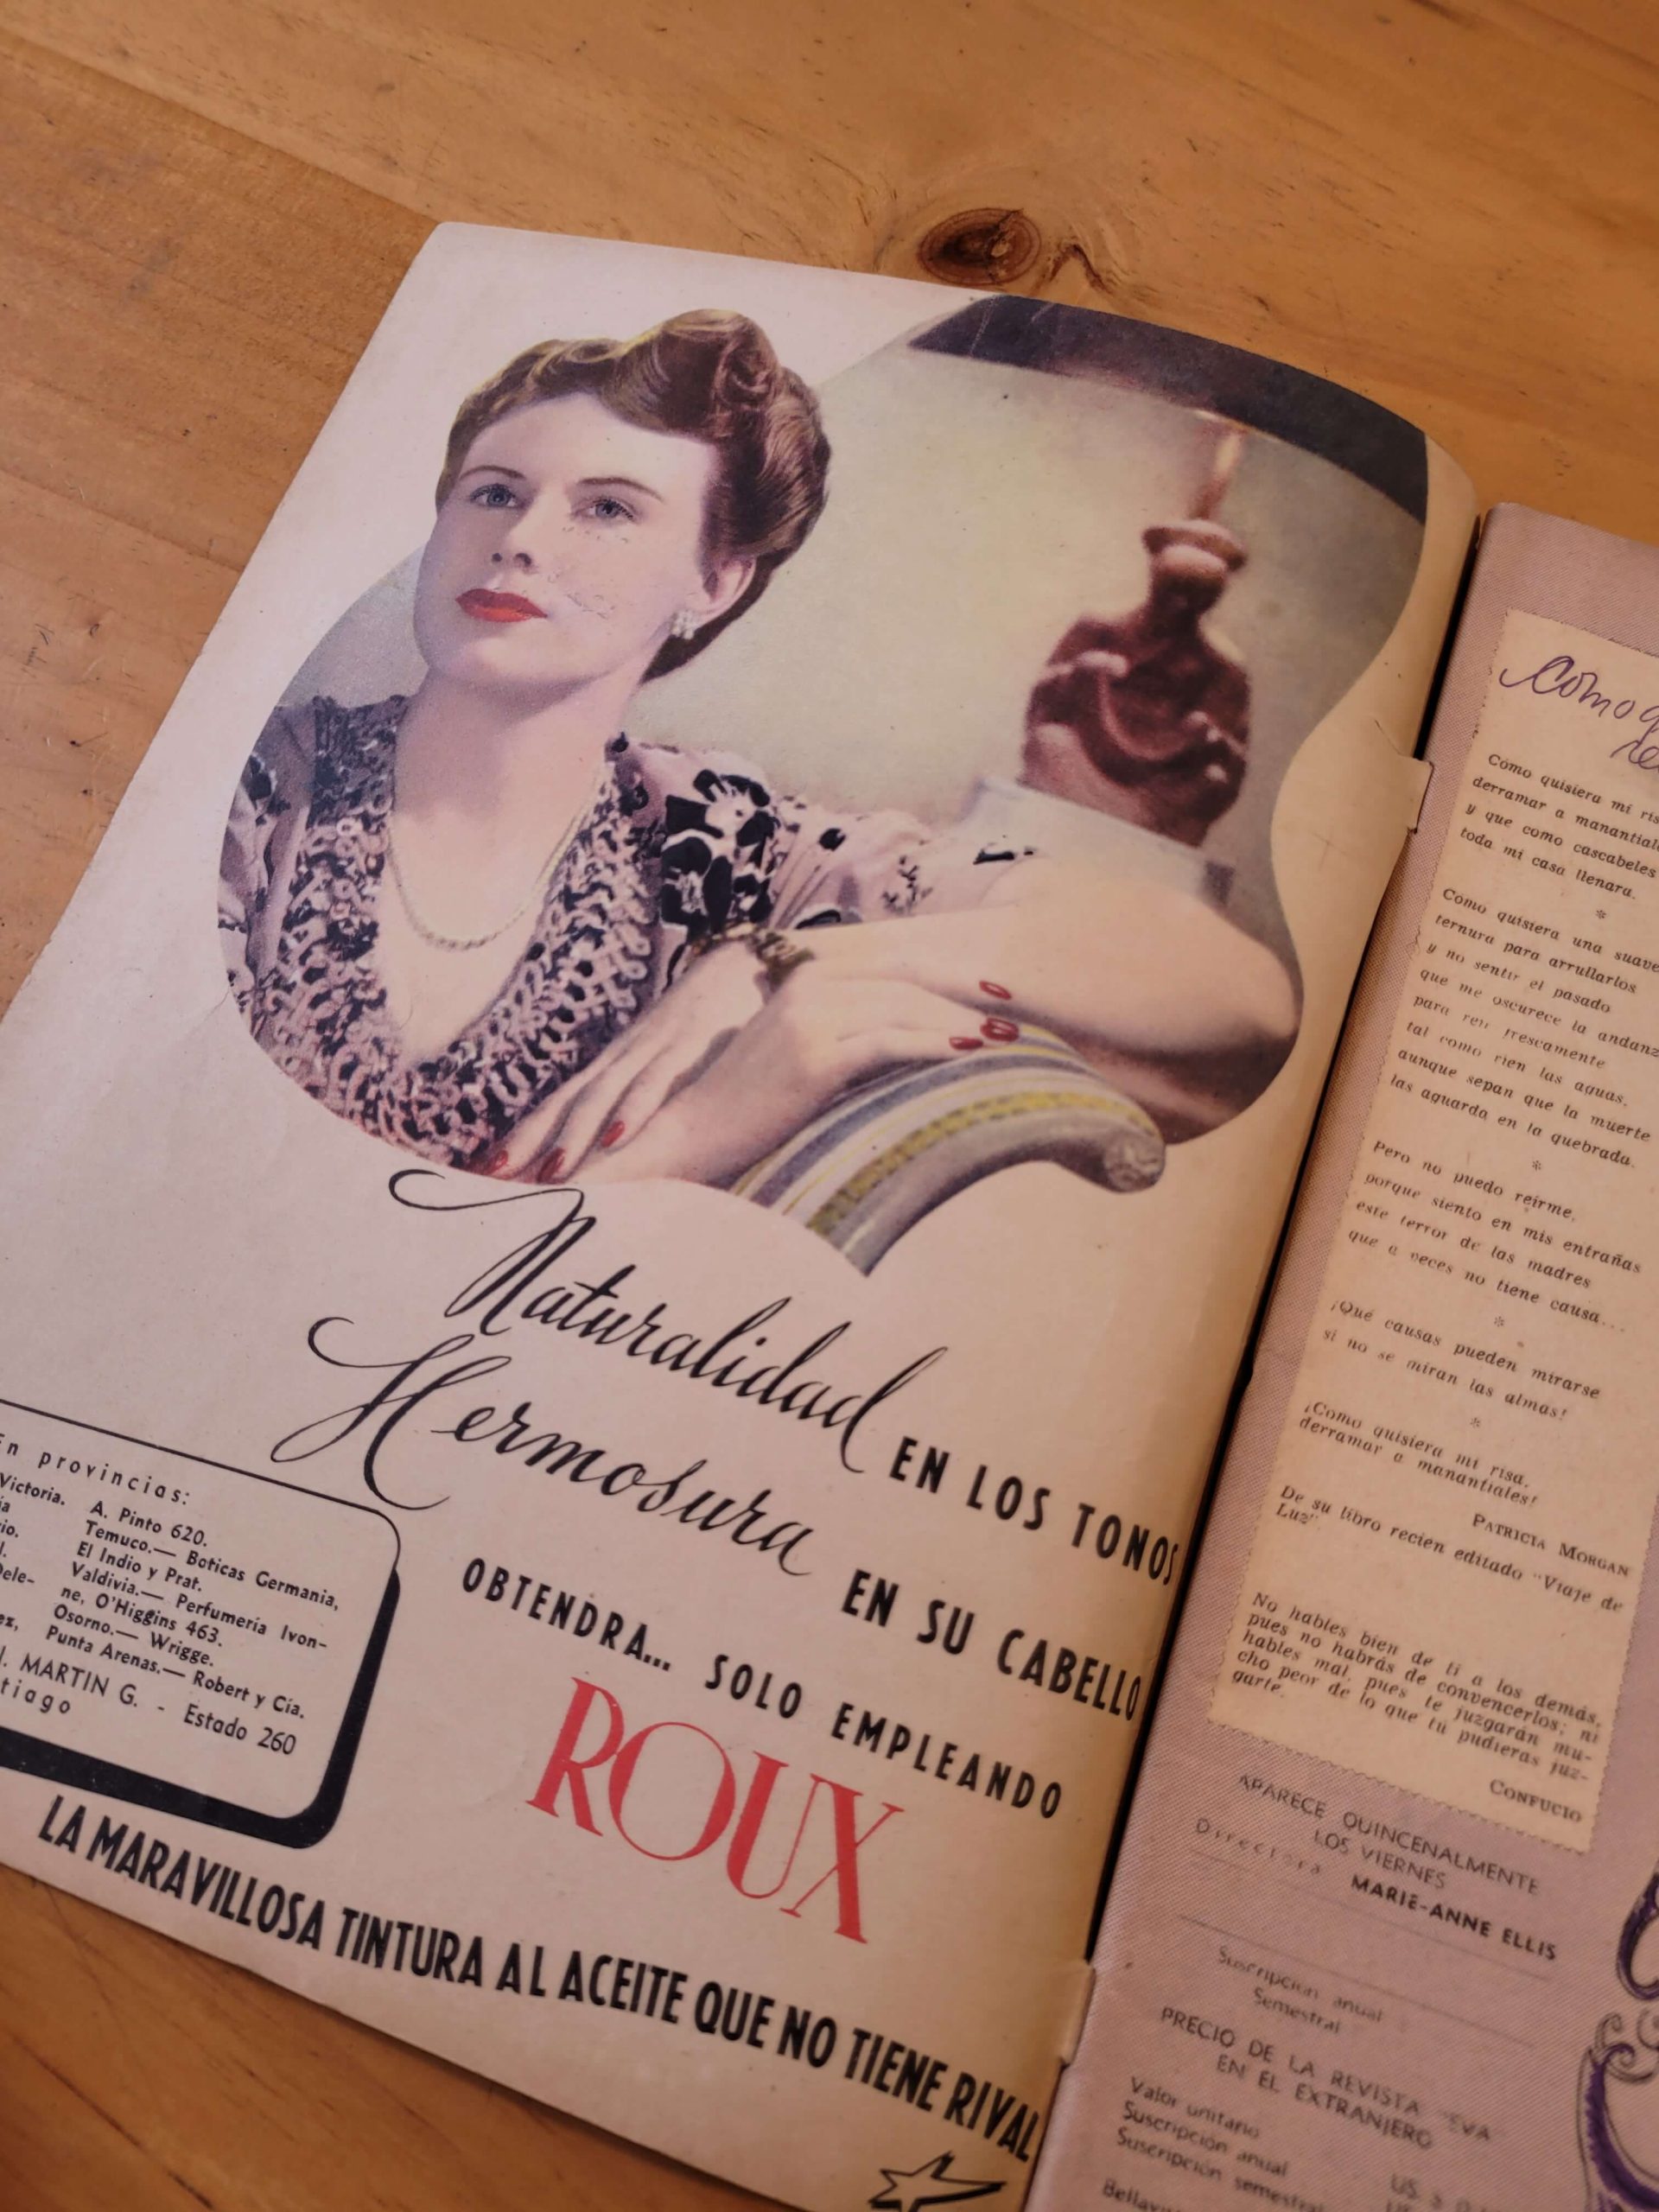 Naturalidad EN LOS TONOS
Hermosura EN SU CABELLO
OBTENDRA... SOLO EMPLEANDO
ROUX
En provincias:
Victoria.
A. Pinto 620.
Temuco.— Boticas Germania,
El Indio y Prat.
Valdivia.— Perfumería Ivon-
ne, O'Higgins 463.
Osorno.— Wrigge.
Punta Arenas.— Robert y Cía.
MARTIN G. - Estado 260
LA MARAVILLOSA TINTURA AL ACEITE QUE NO TIENE RIVAL
Como
Cómo quisiera mi
derramar a
y que como cascabeles
toda mi casa llenara.
*
Como quisiera una suave
ternura para arrullarlos
y no sentir el pasado
que me oscurece la
para reir frescamente
tal como rien las aguas,
aunque sepan que la muerte
las aguarda en la quebrada.
*
Pero no puedo reirme,
porque siento en mis entrañas
este terror de las madres
que a veces no tiene causa...
*
¡Qué causas pueden mirarse
si no se miran las almas!
*
¡Como quisiera mi risa,
derramar a manantiales!
PATRICIA MORGAN
De su libro recien editado "Viaje de
Luz".
No hables bien de ti a los demás,
pues no habrás de convencerlos; ni
hables mal, pues te juzgarán mu-
cho peor de lo que tú pudieras juz-
garte.
CONFUCIO
APARECE QUINCENALMENTE
LOS VIERNES
Directora MARIE-ANNE ELLIS
Suscripción anual
Semestral
PRECIO DE LA REVISTA "EVA
EN EL EXTRANJERO
Valor unitario
Suscripción anual
Suscripción semestral